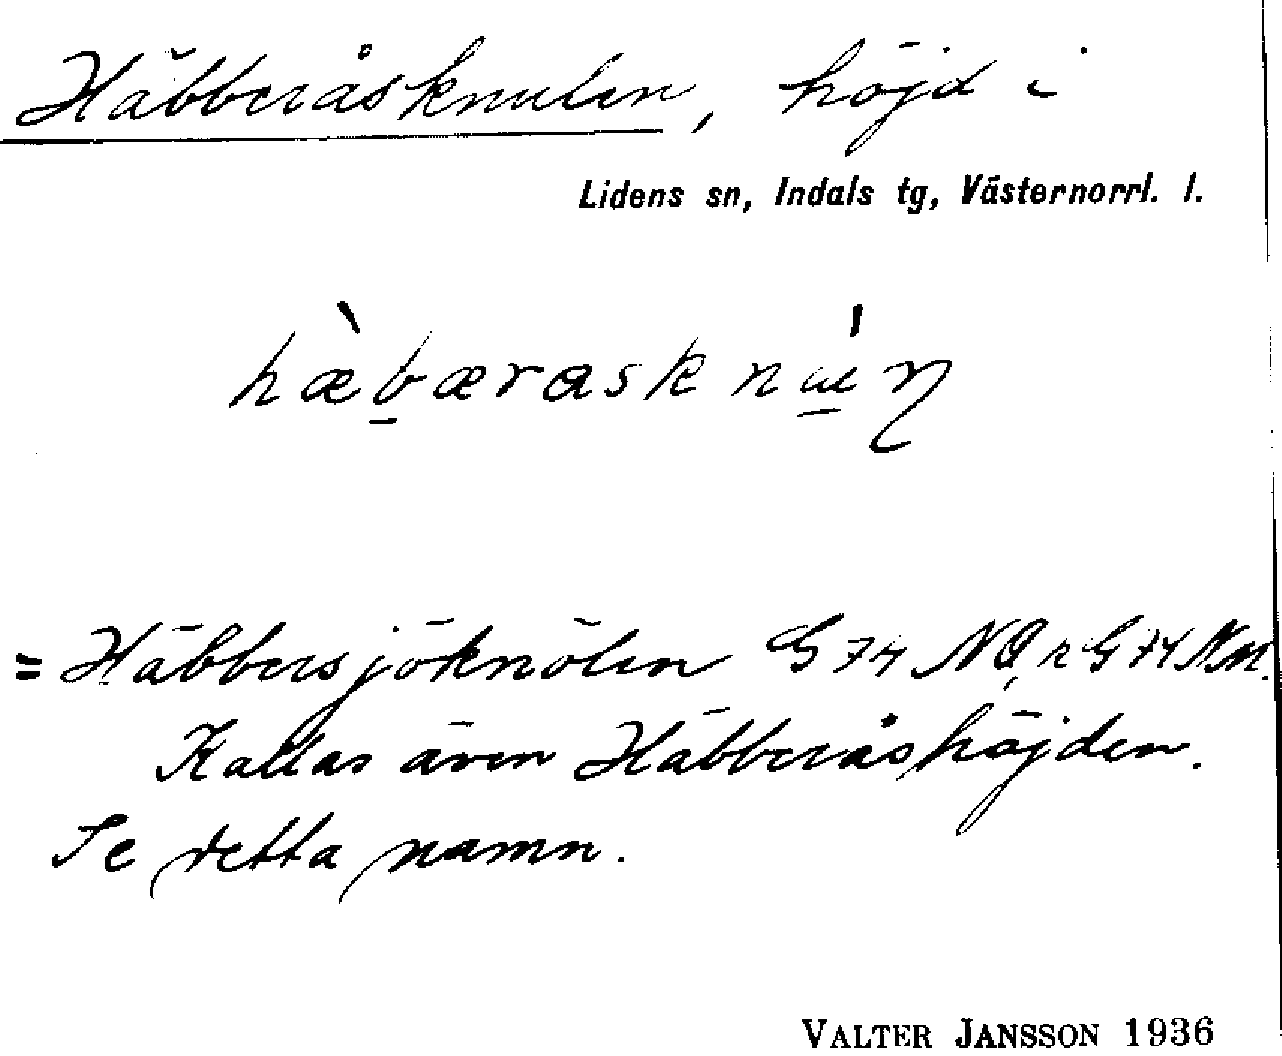 Häbberåsknulen, höjd i
Lidens sn, Indals tg, Västernorrl. l.
hæ̀b̠ærasknu̠ń
= Häbbersjöknölen G 74 NO, k G 74 NM.
Kallas även Häbberåshöjden.
Se detta namn.
VALTER JANSSON 1936